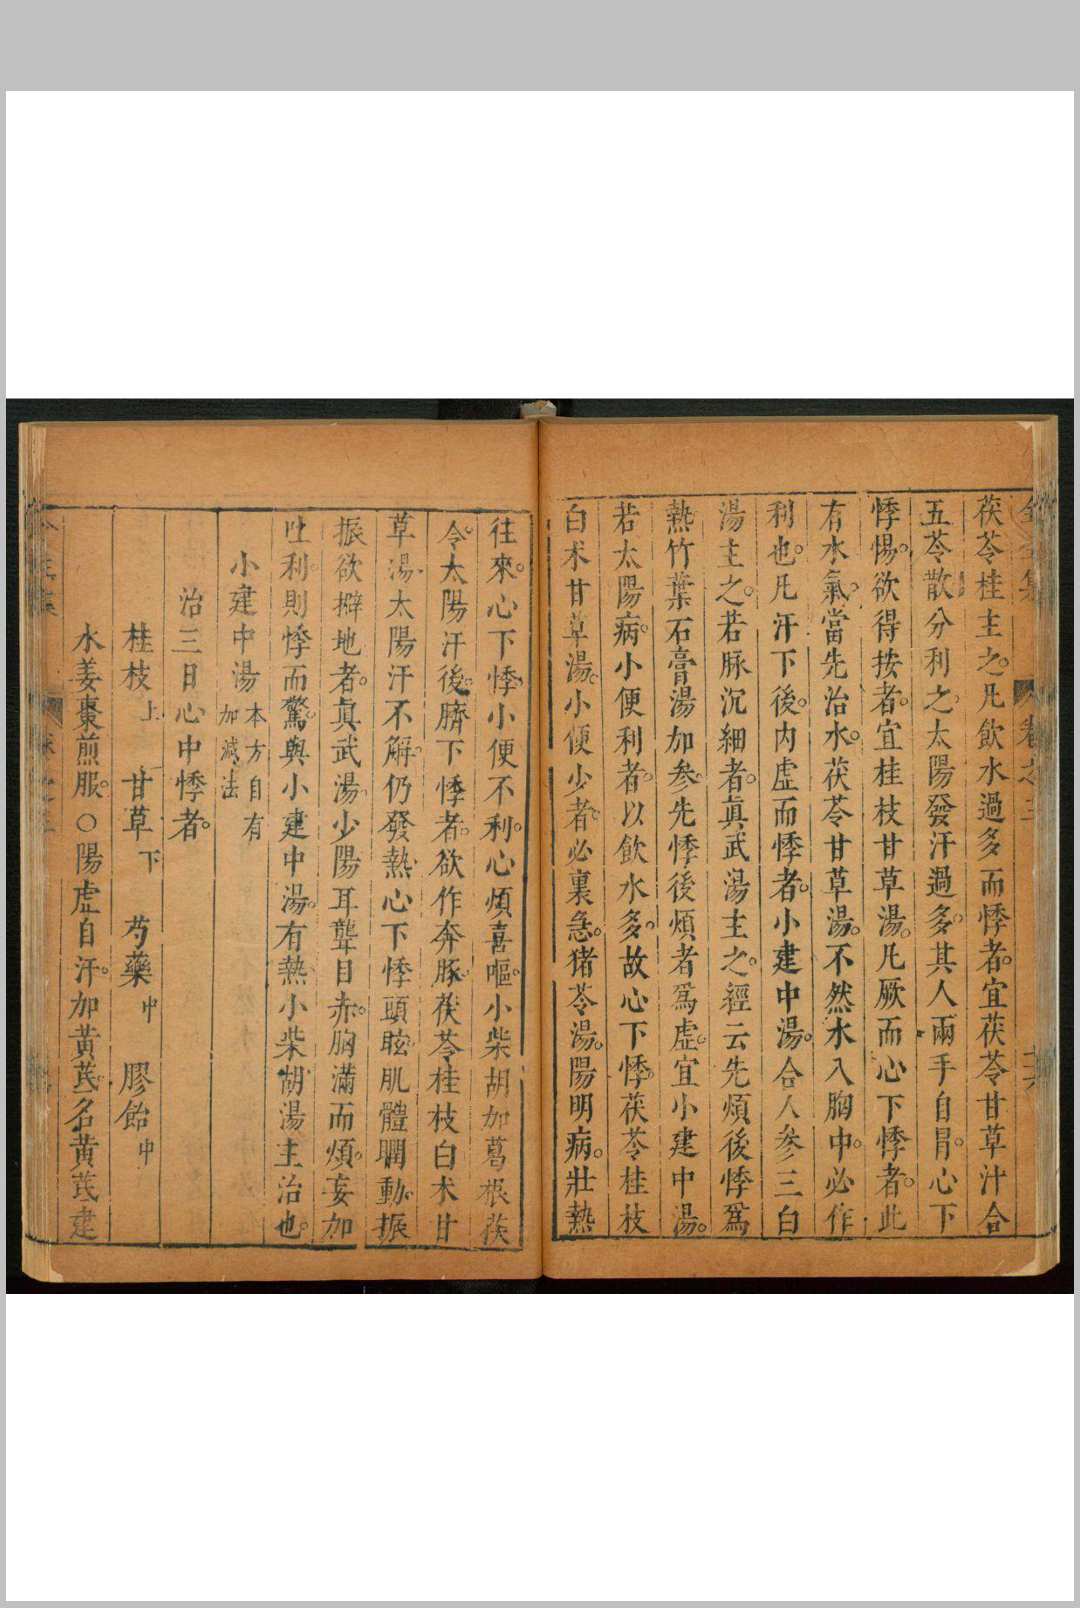 茯苓桂主之。凡飲水過多而悸者。宜茯苓甘草汁合
五苓散分利之。太陽發汗過多。其人兩手自冒。心下
悸惕。欲得按者。宜桂枝甘草湯。凡厥而心下悸者。此
有水氣。當先治水。茯苓甘草湯。不然水入胸中。必作
利也。凡汗下後。内虚而悸者。小建中湯。合人參三白
湯主之。若脉沉細者。眞武湯主之。經云先煩後悸爲
熱竹葉石膏湯加參。先悸後煩者爲虚。宜小建中湯。
若太陽病。小便利者。以飲水多。故心下悸。茯苓桂枝
白术甘草湯。小便少者。必裏急。猪苓湯。陽明病。壯熱
往來。心下悸。小便不利。心煩喜嘔。小柴胡加葛根茯
令。太陽汗後。臍下悸者。欲作奔豚。茯苓桂枝白术甘
草湯。太陽汗不解。仍發熱。心下悸頭眩。肌體瞤動。振
振欲擗地者。眞武湯。少陽耳聾目赤。胸滿而煩。妄加
吐利。則悸而驚。與小建中湯。有熱小柴胡湯主治也。
小建中湯 本方自有加減法
治三日心中悸者。
桂枝上 甘草下 芍藥中 膠飴中
水姜棗煎服。○陽虚自汗。加黄芪。名黄芪建